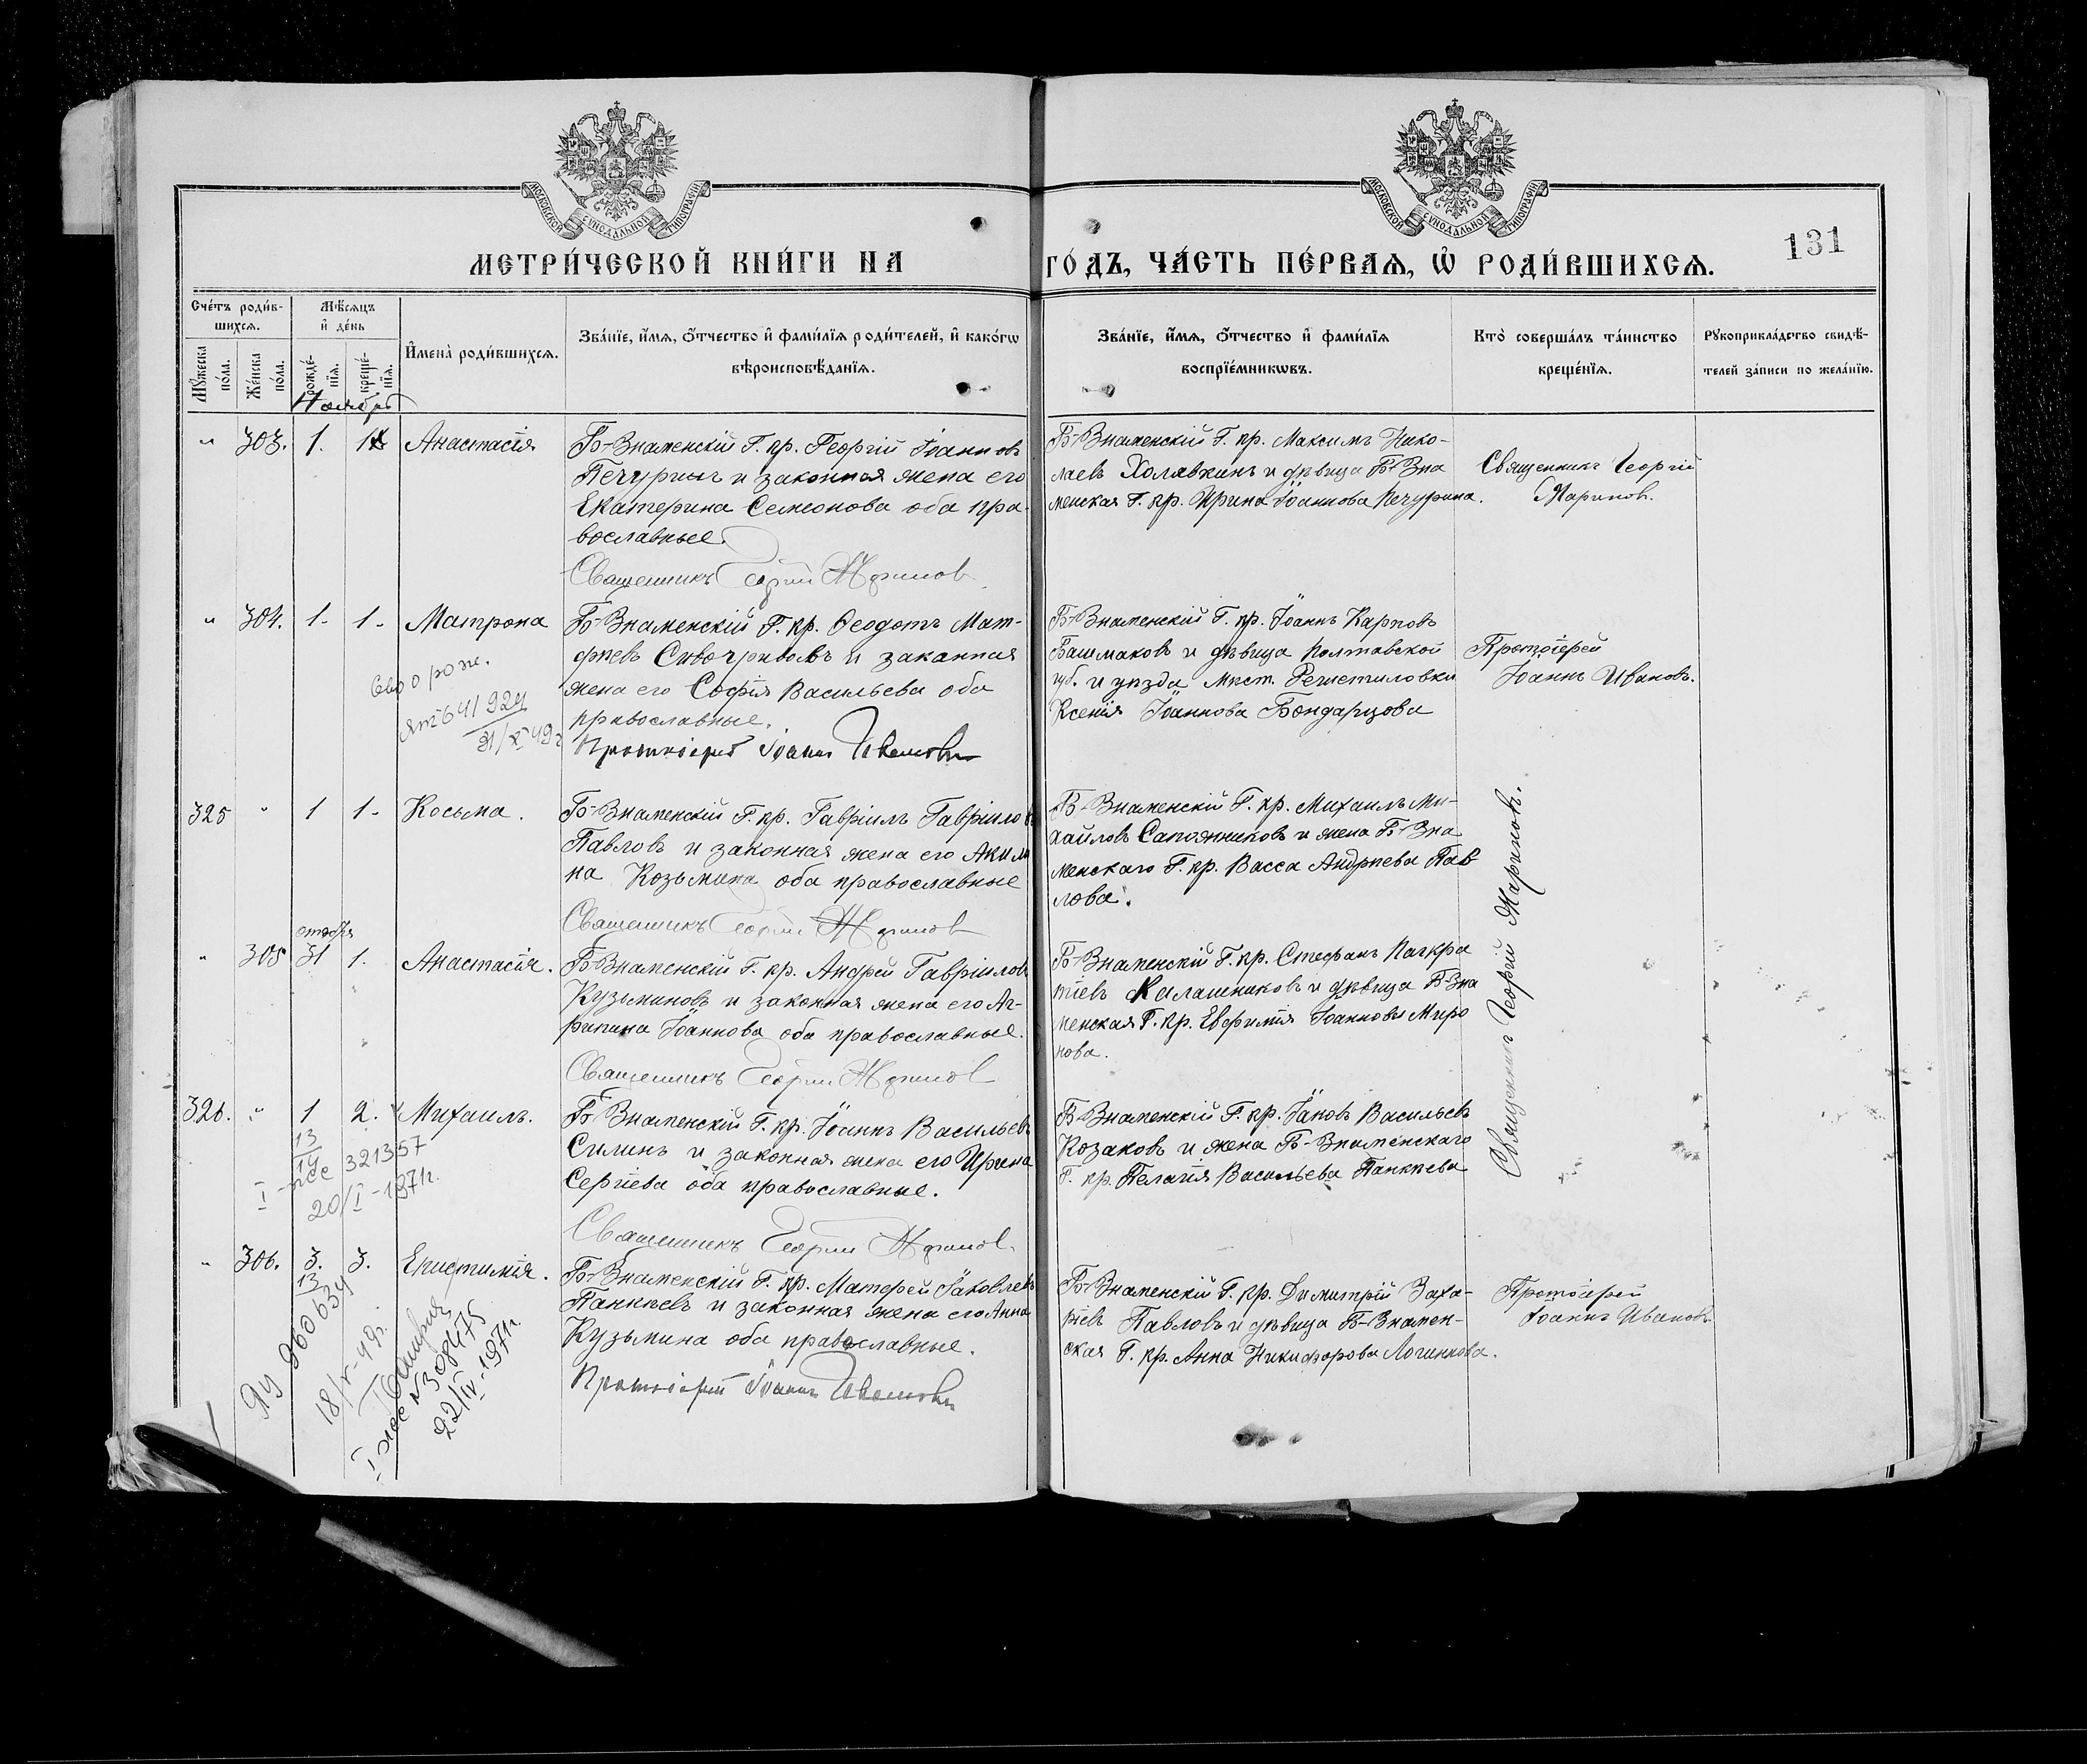 МОСКОВСКОЙ СѴНОДАЛЬНОЙ ТИПОГРАФІИ
МОСКОВСКОЙ СѴНОДАЛЬНОЙ ТИПОГРАФІИ
МЕТРИ́ЧЕСКОЙ КНИ́ГИ НА ГО́ДЪ, ЧА́СТЬ ПЕ́РВАѦ, Ѡ҆ РОДИ́ВШИХСѦ.
131
Сче́тъ роди́в-
шихсѧ.
Мѣ́сѧцъ
и҆ де́нь
Мꙋ́жеска
по́ла.
Же́нска
по́ла.
рожде́-
нїѧ.
креще́-
нїѧ.
И҆мена̀ роди́вшихсѧ.
Зва́нїе, и҆́мѧ, о҆́тчество и҆ фами́лїѧ роди́телей, и҆ како́гѡ
вѣроисповѣ́данїѧ.
Зва́нїе, и҆́мѧ, о҆́тчество и҆ фами́лїѧ
воспрїе́мникѡвъ.
Кто̀ соверша́лъ та́инство
креще́нїѧ.
Рꙋкоприкла́дство свидѣ́-
телей за́писи по жела́нїю.
Ноябрь
" 303. 1. Анастасія
Б-Знаменскій Г. кр. Георгій Іоанновъ
Печуринъ и законная жена его
Екатерина Семеонова оба пра-
вославные.
Священникъ Георгій Маринов
Б-Знаменскій Г. кр. Максимъ Нико-
лаевъ Холявкинъ и дѣвица Б-Зна
менская Г. кр. Ирина Іоаннова Печурина.
Священникъ Георгій
Мариновъ.
" 304. 1. 1. Матрона
Б-Знаменскій Г. кр. Ѳеодотъ Мат-
фѣевъ Сивогривовъ и законная
жена его Софія Васильева оба
православные.
Протоіерей Іоаннъ Ивановъ
Б-Знаменскій Г. кр. Іоаннъ Карповъ
Башмаковъ и дѣвица Полтавской
губ. и уѣзда мѣст. Решетиловки
Ксенія Іоаннова Бондарцова
Протоіерей
Іоаннъ Ивановъ.
325 " 1 1. Косьма.
Б-Знаменскій Г. кр. Гавріилъ Гавріиловъ
Павловъ и законная жена его Акили
на Козьмина оба православные
Священникъ Георгій Маринов
Б-Знаменскій Г. кр. Михаилъ Ми-
хайловъ Сапожниковъ и жена Б-Зна
менскаго Г. кр. Васса Андрѣева Пав
лова.
Священникъ Георгій Мариновъ.
октября
" 305 31 1. Анастасія.
Б-Знаменскій Г. кр. Андрей Гавріиловъ
Кузьминовъ и законная жена его Аг-
рипина Іоаннова оба православные.
Священникъ Георгій Маринов
Б-Знаменскій Г. кр. Стефанъ Панкра
тіевъ Калашниковъ и дѣвица Б-Зна
менская Г. кр. Евфимія Іоаннова Миро
нова.
326. " 1 2. Михаилъ.
13
14
I-же 321357
20/I-1971г.
Б-Знаменскій Г. кр. Іоаннъ Васильевъ
Силинъ и законная жена его Ирина
Сергіева оба православные.
Священникъ Георгій Маринов.
Б-Знаменскій Г. кр. Іаковъ Васильевъ
Козаковъ и жена Б-Знаменскаго
Г. кр. Пелагія Васильева Панкѣева
" 306. 3. 3. Епистимія.
13
960634
18/V-49г.
N308475
22/IV-1971г.
Б-Знаменскій Г. кр. Матфей Іаковлевъ
Панкѣевъ и законная жена его Анна
Кузьмина оба православные.
Протоіерей Іоаннъ Ивановъ
Б-Знаменскій Г. кр. Димитрій Заха-
ріевъ Павловъ и дѣвица Б-Знамен-
ская Г. кр. Анна Никифорова Логинова.
Протоіерей
Іоаннъ Ивановъ